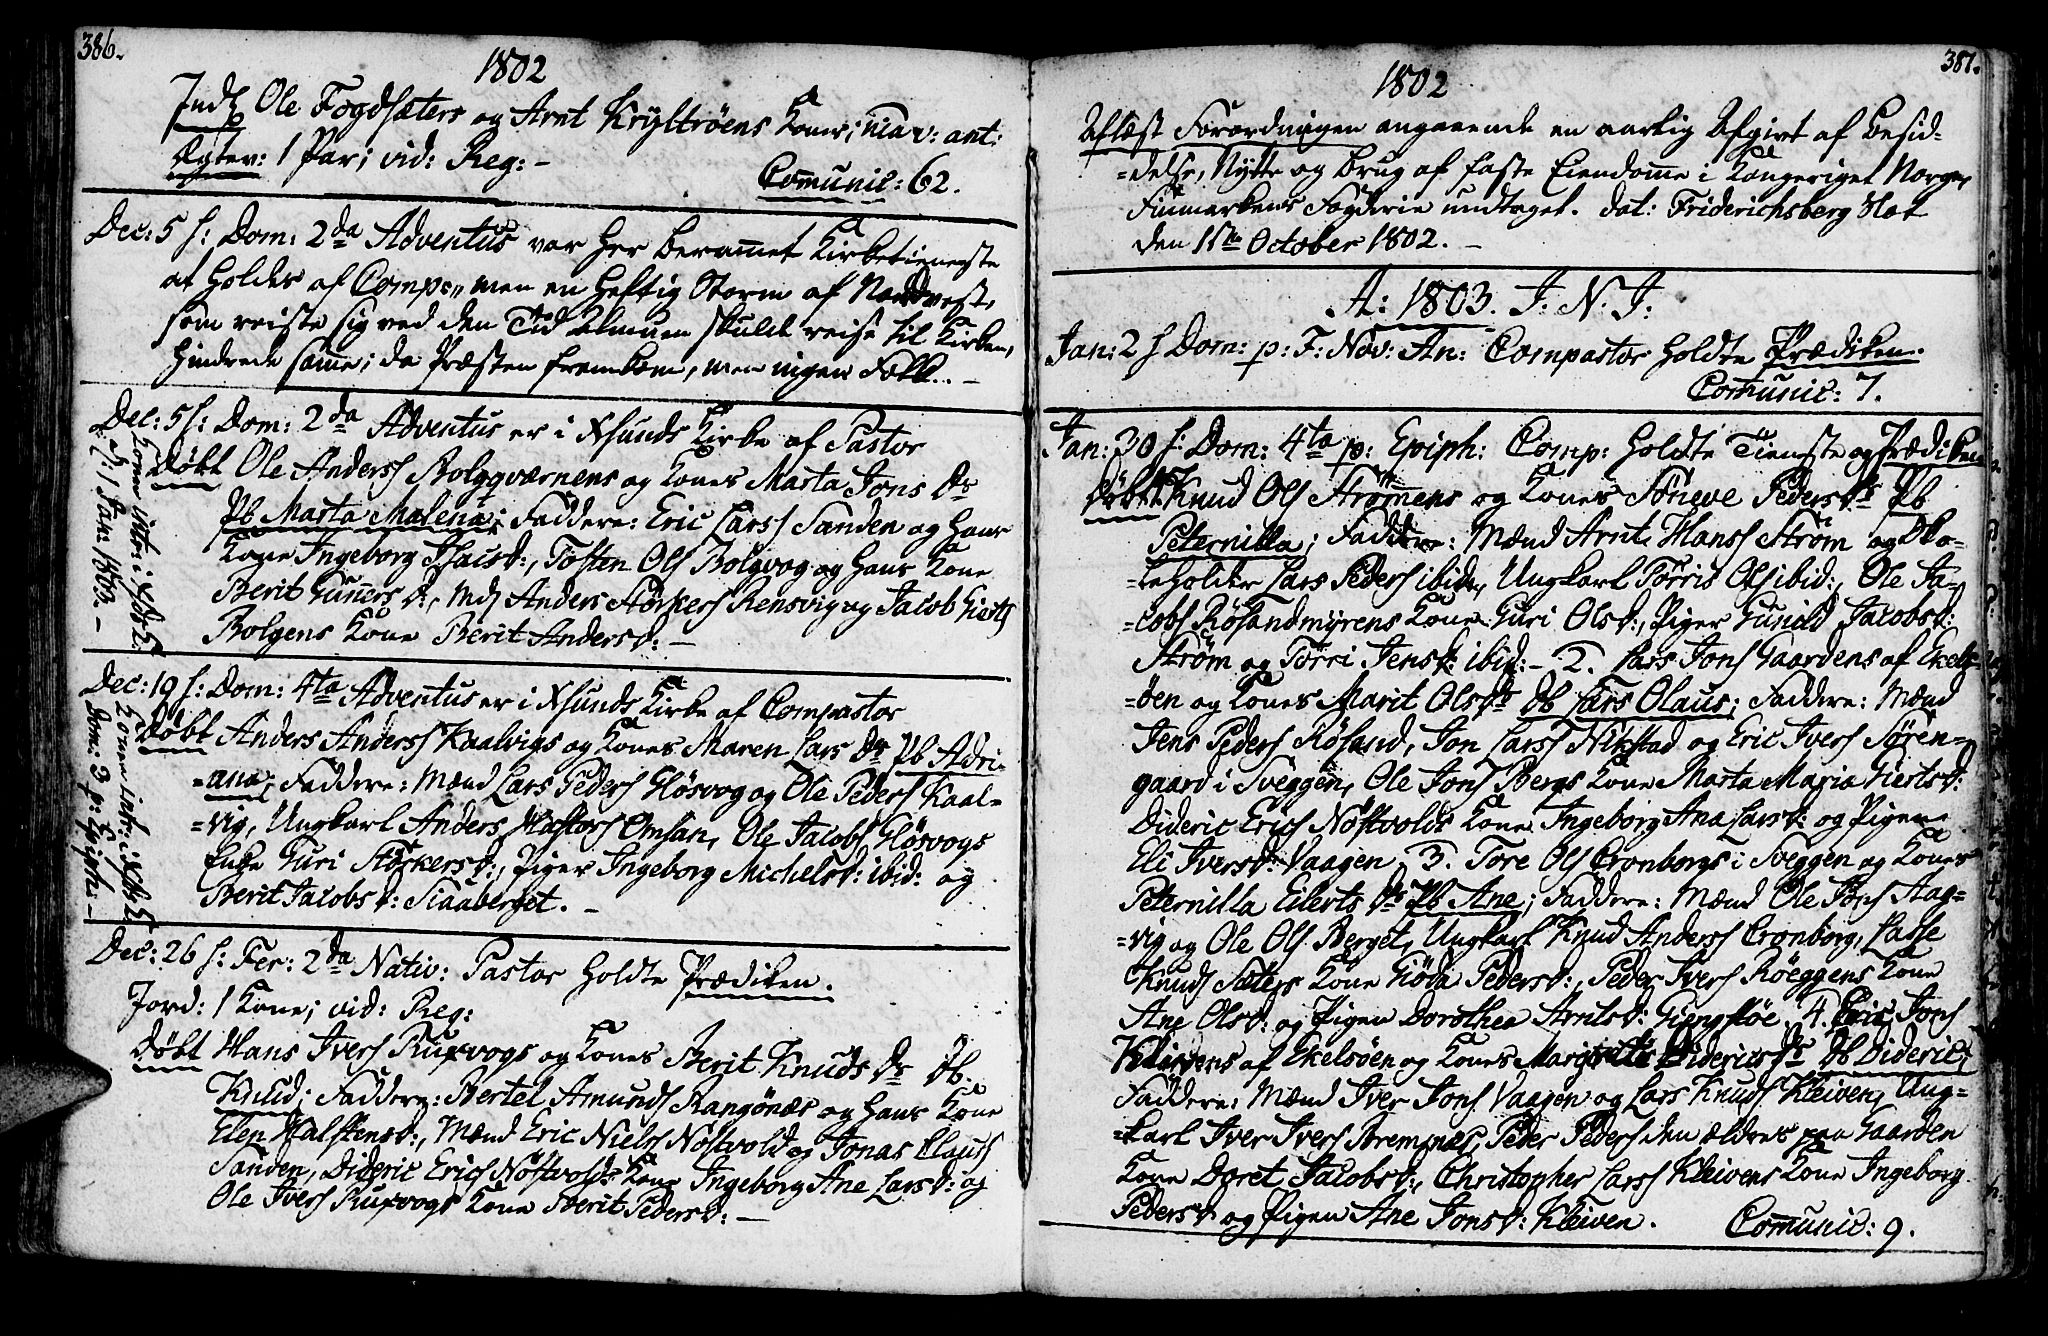 386.
1802
Indl: Ole Fogdsæters og Arnt Kryltrøens Koner; niav: ant:
Ægtev: 1 Par; vid: Reg: -
Comunic: 62.
Dec: 5 h: Dom: 2da Adventus var her beramet Kirketieneste
at holdes af Comp:, men en heftig Storm af Nordvest,
som reiste sig ved den Tid Almuen skulde reise til Kirken,
hindrede samme; da Præsten fremkom, men ingen Folk. -
Dec: 5 h: Dom: 2da Adventus er i Xsunds Kirke af Pastor
Døbt Ole Anders Bolgqværnens og Kones Marta Jons Dr
Pb Marta Malena; Faddere: Eric Larss Sanden og hans
Kone Ingeborg Isacsd:, Tosten Ols Bolgvog og hans Kone
Berit Guners d:, Md Anders Størkers Rensvig og Jacob Gierts
Bolgens Kone Berit Andersd: -
Konen intr: i Xsds K:
d: 1 Jan: 1803. -
Dec: 19 h: Dom: 4ta Adventus er i Xsunds Kirke af Compastor
Døbt Anders Anderss Kaalvigs og Kones Maren Lars Dr Pb Adri-
=ana; Faddere: Mænd Lars Peders Gløsvog og Ole Peders Kaal-
=vig, Ungkarl Anders Hastors Omsan, Ole Jacobs Gløsvogs
Enke Guri Størkersd:, Piger Ingeborg Michelsd: ibid: og
Berit Jacobsd: Siaaberget. -
Konen intr: i Xsds K:
Dom: 3 p: Epiph: -
Dec: 26 h: Fer: 2da Nativ: Pastor holdte Prædiken.
Jord: 1 Kone; vid: Reg:
Døbt Hans Ivers Ruxvogs og Kones Berit Knuds Dr Db
Knud; Faddere: Bertel Amunds Rangønæs og hans Kone
Elen Halstensd:, Mænd Eric Niels Nøstvold og Jonas Claus
Sanden, Dideric Erics Nøstvolds Kone Ingeborg Ane Larsd: og
Ole Ivers Ruxvogs Kone Berit Pedersd: -
387.
1802
Aflæst Forordningen angaaende en aarlig Afgivt af Besid-
=delse, Nytte og Brug af faste Eiendomme i Kongeriget Norge,
Finmarkens Fogderie undtaget. dat: Friderichsberg Slot
den 1ste October 1802. -
A: 1803. I. N. J:
Jan: 2 h Dom: p: F: Nov: An: Compastor holdte Prædiken.
Comunic: 7.
Jan: 30 h: Dom: 4ta p: Epiph: Comp: holdte Tieneste og Prædiken
Døbt 1. Knud Ols Strømens og Kones Søneve Peders Dr Pb
Peternilla; Faddere: Mænd Arnt Hanss Strøm og Sko-
=leholder Lars Peders ibid:, Ungkarl Tørris Ols ibid:, Ole Ja-
=cobs Røsandmyrens Kone Guri Olsd:, Piger Gunild Jacobsd:
Strøm og Tørri Jensd: ibid: - 2. Lars Jons Gaardens af Ekels-
=øen og Kones Marit Ols Dr Db Lars Olaus; Faddere: Mænd
Jens Peders Røsand, Jon Larss Nikstad og Eric Ivers Søren-
gaard i Sveggen, Ole Jons Bergs Kone Marta Maria Giertsd:
Dideric Erics Nøstvolds Kone Ingeborg Ana Larsd: og Pigen
Eli Iversd: Vaagen. 3. Tore Ols Cronborgs i Sveggen og Kones
Peternilla Eilerts Dr Pb Ane; Faddere: Mænd Ole Jons Aag-
=vig og Ole Ols Berget, Ungkarl Knud Anders Cronborg, Lasse
Knuds Sæters Kone Giøda Pedersd:, Peder Ivers Røeggens Kone
Ane Olsd: og Pigen Dorothea Arntsd: Giengstøe. 4. Eric Jons
Kleivens af Ekelsøen og Kones Margrette Diderics Dr Db Dideric;
Faddere: Mænd Iver Jons Vaagen og Lars Knuds Kleiven, Ung-
=karl Iver Ivers Bremnæs, Peder Peders den ældres paa Gaarden
Kone Doret Jacobsd:, Christopher Larss Kleivens Kone Ingeborg
Pedersd: og Pigen Ane Jonsd: Kleiven.
Comunic: 9.